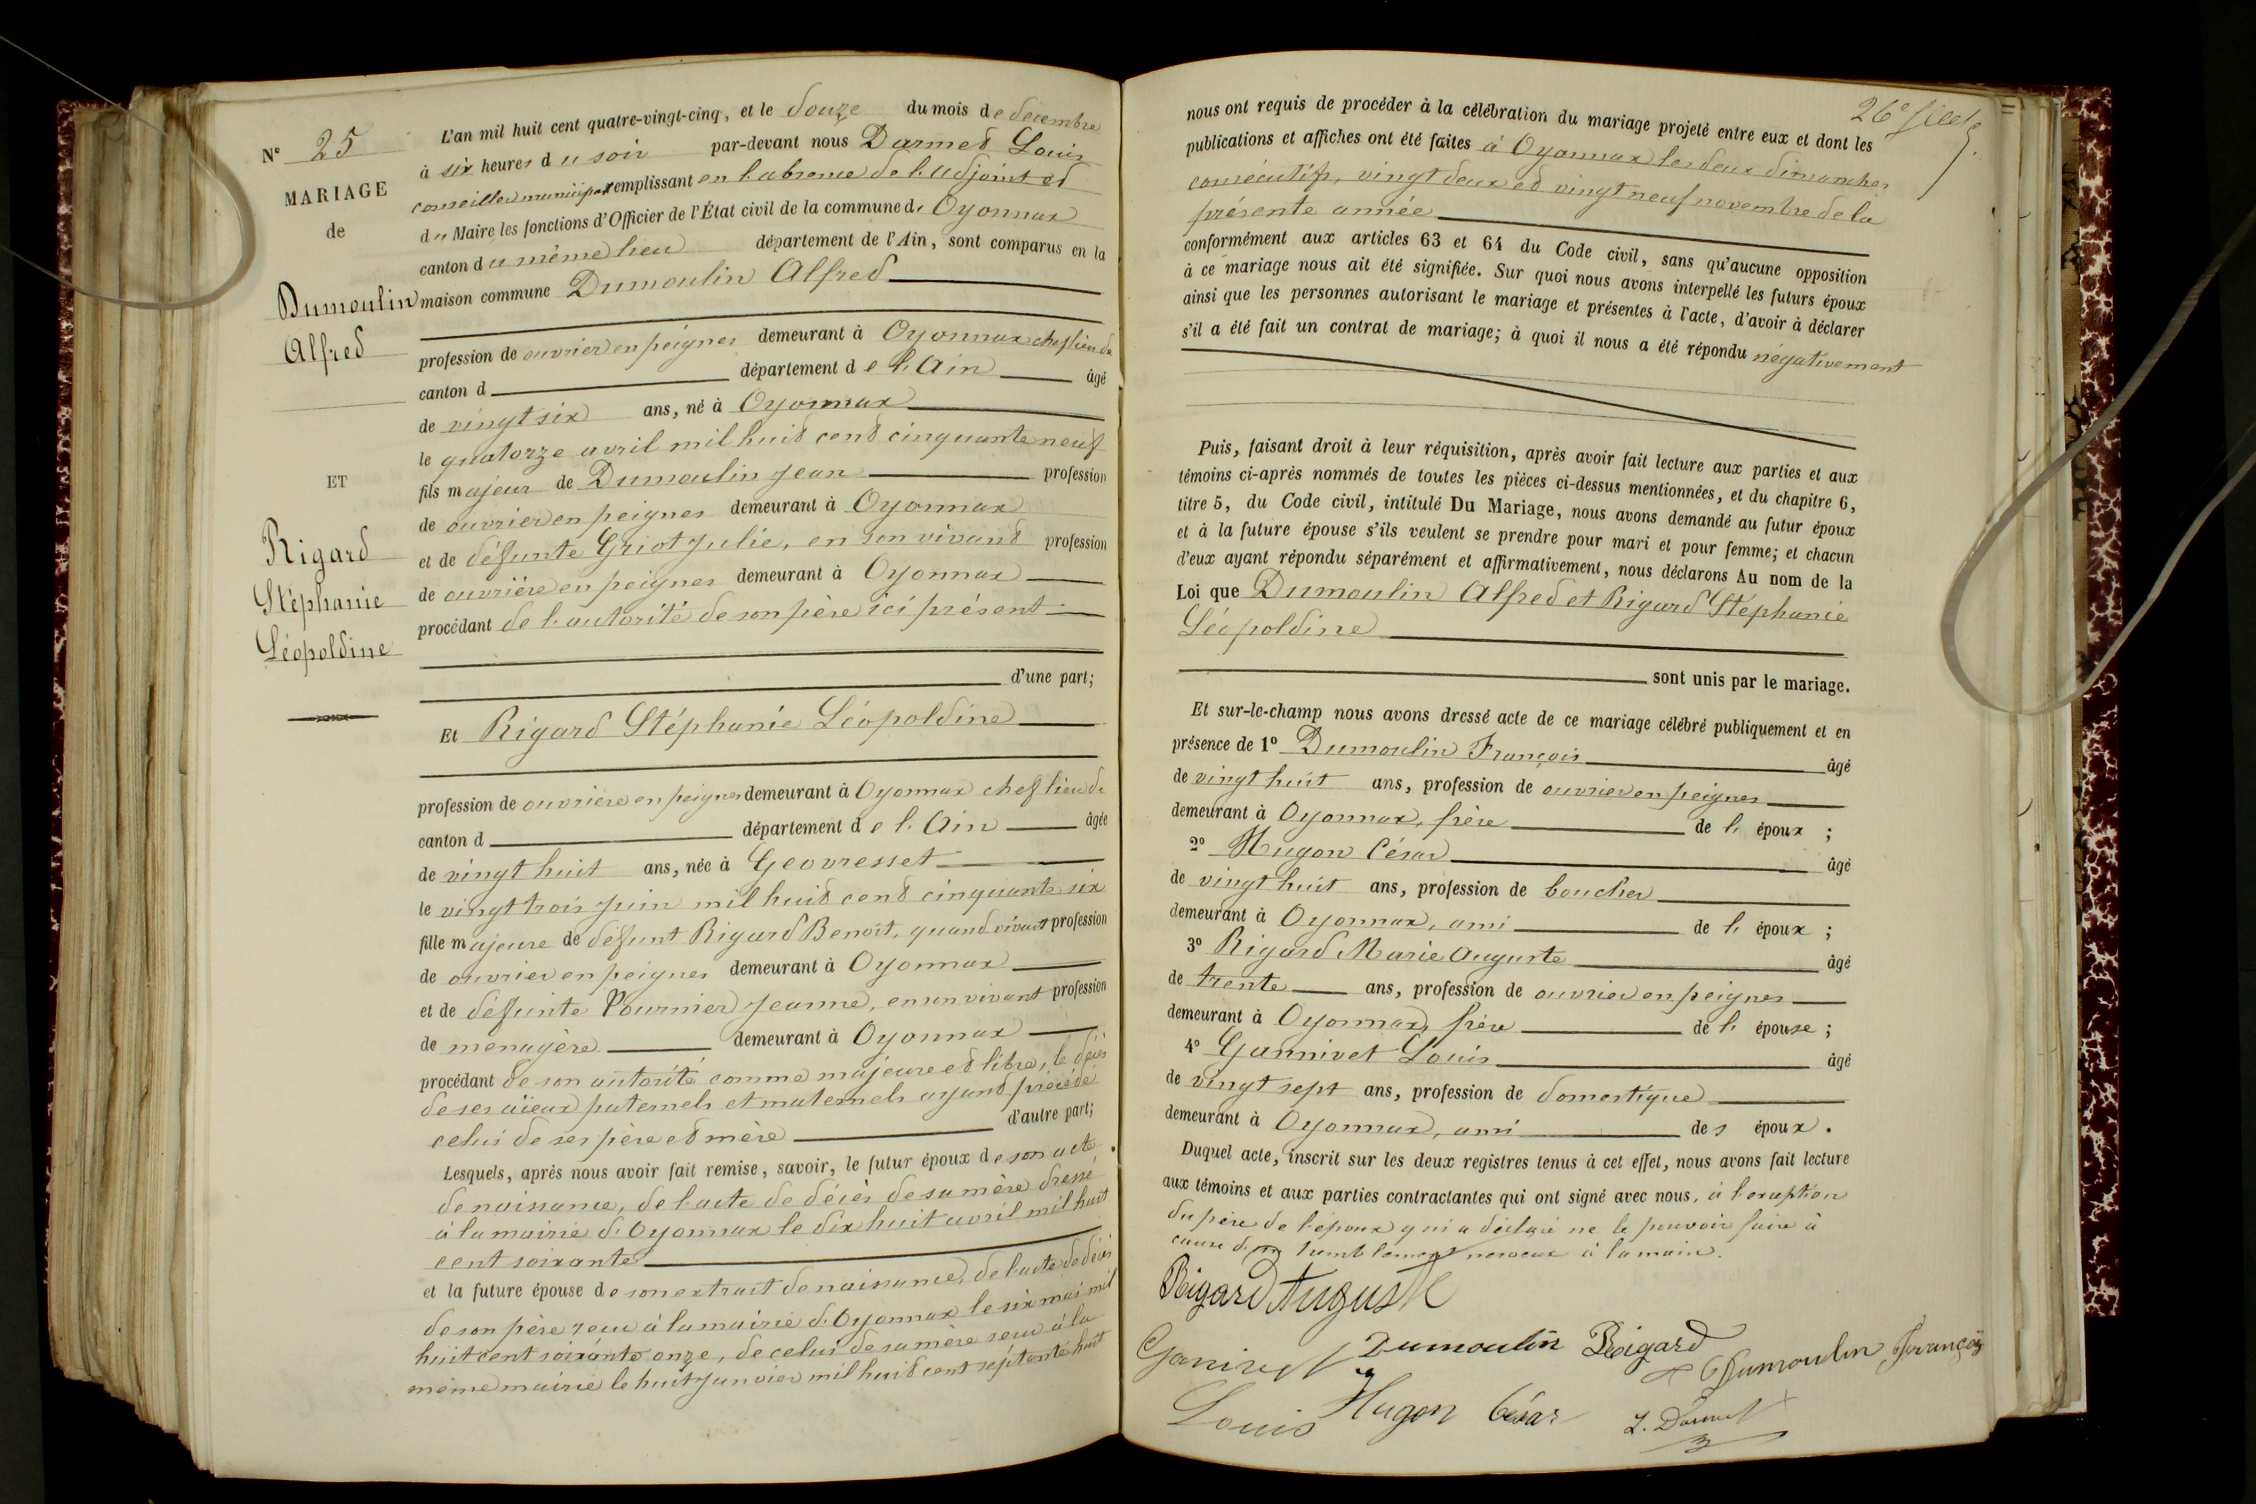 N° 25
MARIAGE
de
Dumoulin
Alfred
ET
Rigard
Stéphanie
Léopoldine
L'an mil huit cent quatre-vingt-cinq, et le douze du mois de décembre
à six heures du soir par-devant nous Darmet Louis
conseiller municipal remplissant en l'absence de l'adjoint et
du Maire les fonctions d'Officier de l'État civil de la commune d' Oyonnax
canton du même lieu département de l'Ain, sont comparus en la
maison commune Dumoulin Alfred
profession de ouvrier en peignes demeurant à Oyonnax chef lieu de
canton d département de l'Ain âgé
de vingt six ans, né à Oyonnax
le quatorze avril mil huit cent cinquante neuf
fils majeur de Dumoulin Jean profession
de ouvrier en peignes demeurant à Oyonnax
et de défunte Griot Julie, en son vivant profession
de ouvrière en peignes demeurant à Oyonnax
procédant de l'autorité de son père ici présent
d'une part;
Et Rigard Stéphanie Léopoldine
profession de ouvrière en peignes demeurant à Oyonnax chef lieu de
canton d département de l'Ain âgée
de vingt huit ans, née à Geovresset
le vingt trois juin mil huit cent cinquante six
fille majeure de défunt Rigard Benoit, quand vivait profession
de ouvrier en peignes demeurant à Oyonnax
et de défunte Pournier Jeanne, en son vivant profession
de ménagère demeurant à Oyonnax
procédant de son autorité comme majeure et libre, le décès
de ses aïeux paternels et maternels ayant précédé
celui de ses père et mère d'autre part;
Lesquels, après nous avoir fait remise, savoir, le futur époux de son acte
de naissance, de l'acte de décès de sa mère dressé
à la mairie d'Oyonnax le dix huit avril mil huit
cent soixante
et la future épouse de son extrait de naissance, de l'acte de décès
de son père reçu à la mairie d'Oyonnax le six mai mil
huit cent soixante onze, de celui de sa mère reçu à la
même mairie le huit janvier mil huit cent septante huit
nous ont requis de procéder à la célébration du mariage projeté entre eux et dont les
publications et affiches ont été faites à Oyonnax les deux dimanches
consécutifs, vingt deux et vingt neuf novembre de la
présente année
conformément aux articles 63 et 64 du Code civil, sans qu'aucune opposition
à ce mariage nous ait été signifiée. Sur quoi nous avons interpellé les futurs époux
ainsi que les personnes autorisant le mariage et présentes à l'acte, d'avoir à déclarer
s'il a été fait un contrat de mariage; à quoi il nous a été répondu négativement
Puis, faisant droit à leur réquisition, après avoir fait lecture aux parties et aux
témoins ci-après nommés de toutes les pièces ci-dessus mentionnées, et du chapitre 6,
titre 5, du Code civil, intitulé Du Mariage, nous avons demandé au futur époux
et à la future épouse s'ils veulent se prendre pour mari et pour femme; et chacun
d'eux ayant répondu séparément et affirmativement, nous déclarons Au nom de la
Loi que Dumoulin Alfred et Rigard Stéphanie
Léopoldine
sont unis par le mariage.
Et sur-le-champ nous avons dressé acte de ce mariage célébré publiquement et en
présence de 1° Dumoulin François âgé
de vingt huit ans, profession de ouvrier en peignes
demeurant à Oyonnax, frère de l' époux ;
2° Hugon César âgé
de vingt huit ans, profession de boucher
demeurant à Oyonnax, ami de l' époux ;
3° Rigard Marie Auguste âgé
de trente ans, profession de ouvrier en peignes
demeurant à Oyonnax, frère de l' épouse ;
4° Gannivet Louis âgé
de vingt sept ans, profession de domestique
demeurant à Oyonnax, ami des époux.
Duquel acte, inscrit sur les deux registres tenus à cet effet, nous avons fait lecture
aux témoins et aux parties contractantes qui ont signé avec nous, à l'exception
du père de l'époux qui a déclaré ne le pouvoir faire à
cause d'un tremblement nerveux à la main.
Rigard Auguste
Ganivet Dumoulin Rigard Dumoulin François
Louis Hugon César L. Darmet